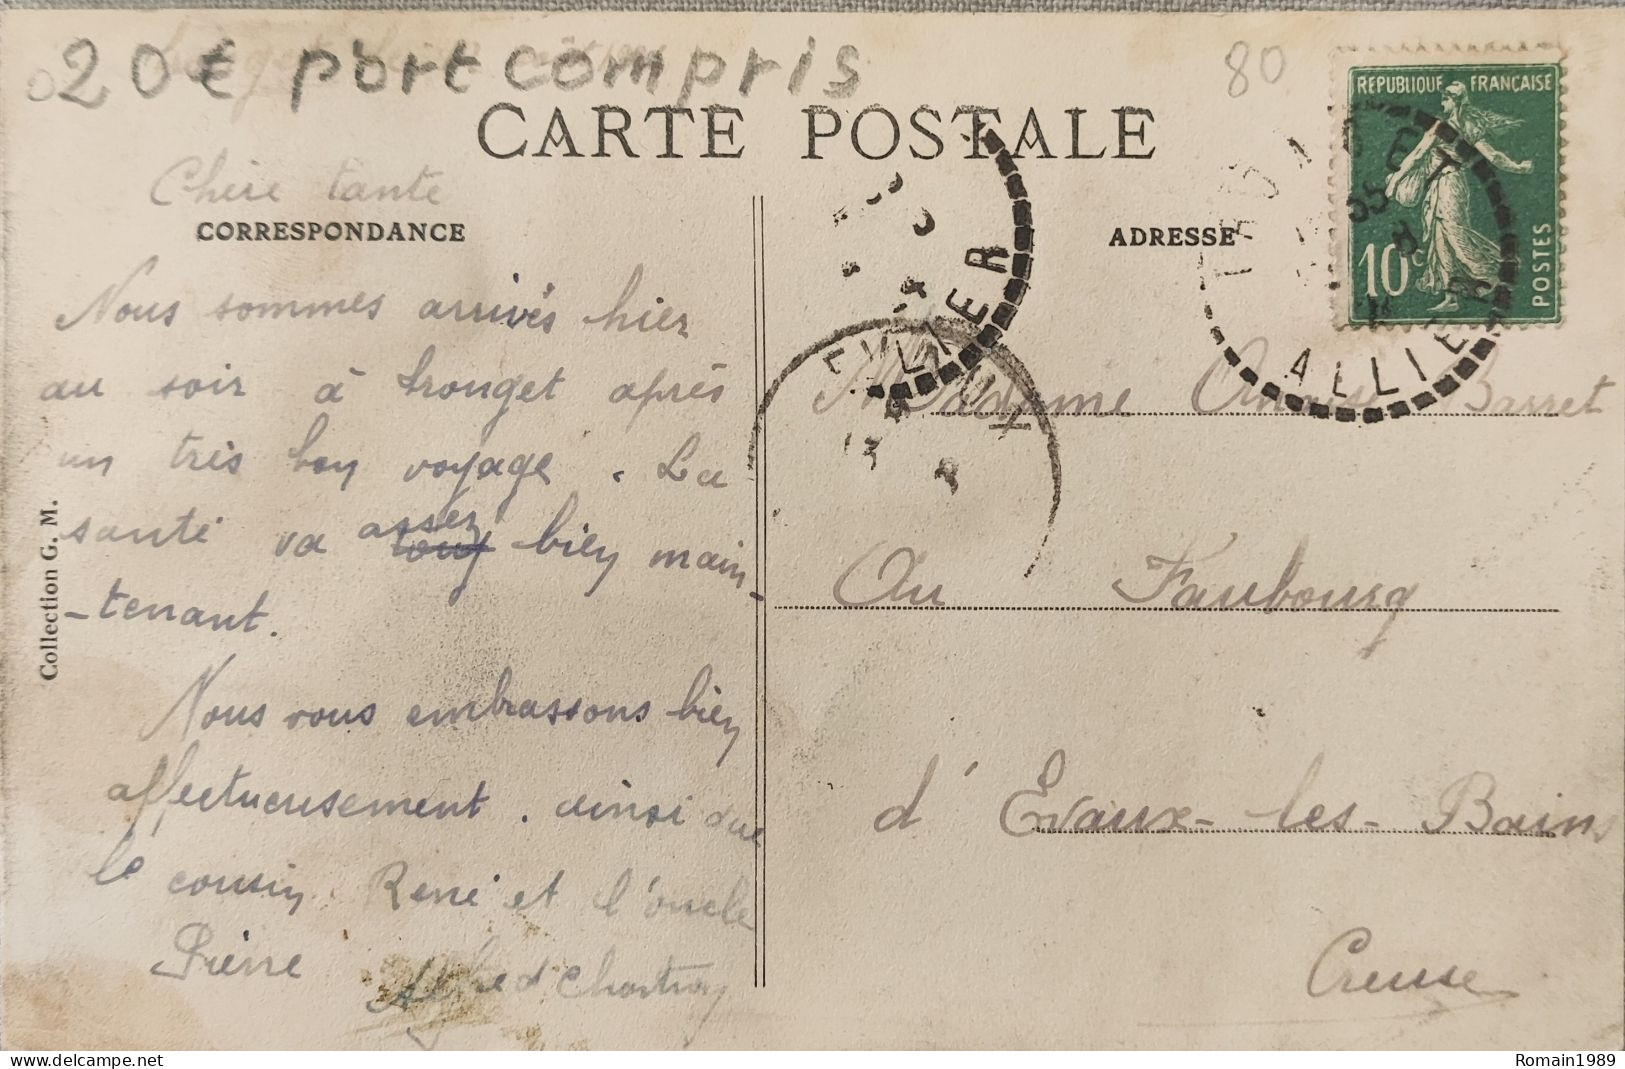 20€ port compris
80
CARTE POSTALE
REPUBLIQUE FRANÇAISE
10c
POSTES
TRONGET
ALLIER
ALLIER
Chère tante
CORRESPONDANCE
ADRESSE
Nous sommes arrivés hier
au soir à tronget après
un très bon voyage. La
santé va assez bien main-
-tenant.
Nous vous embrassons bien
affectueusement. ainsi que
le cousin René et l'oncle
Pierre
Alfred
Collection G. M.
Madame Anaïse Barret
Au Faubourg
d'Evaux-les-Bains
Creuse
delcampe.net
Romain1989